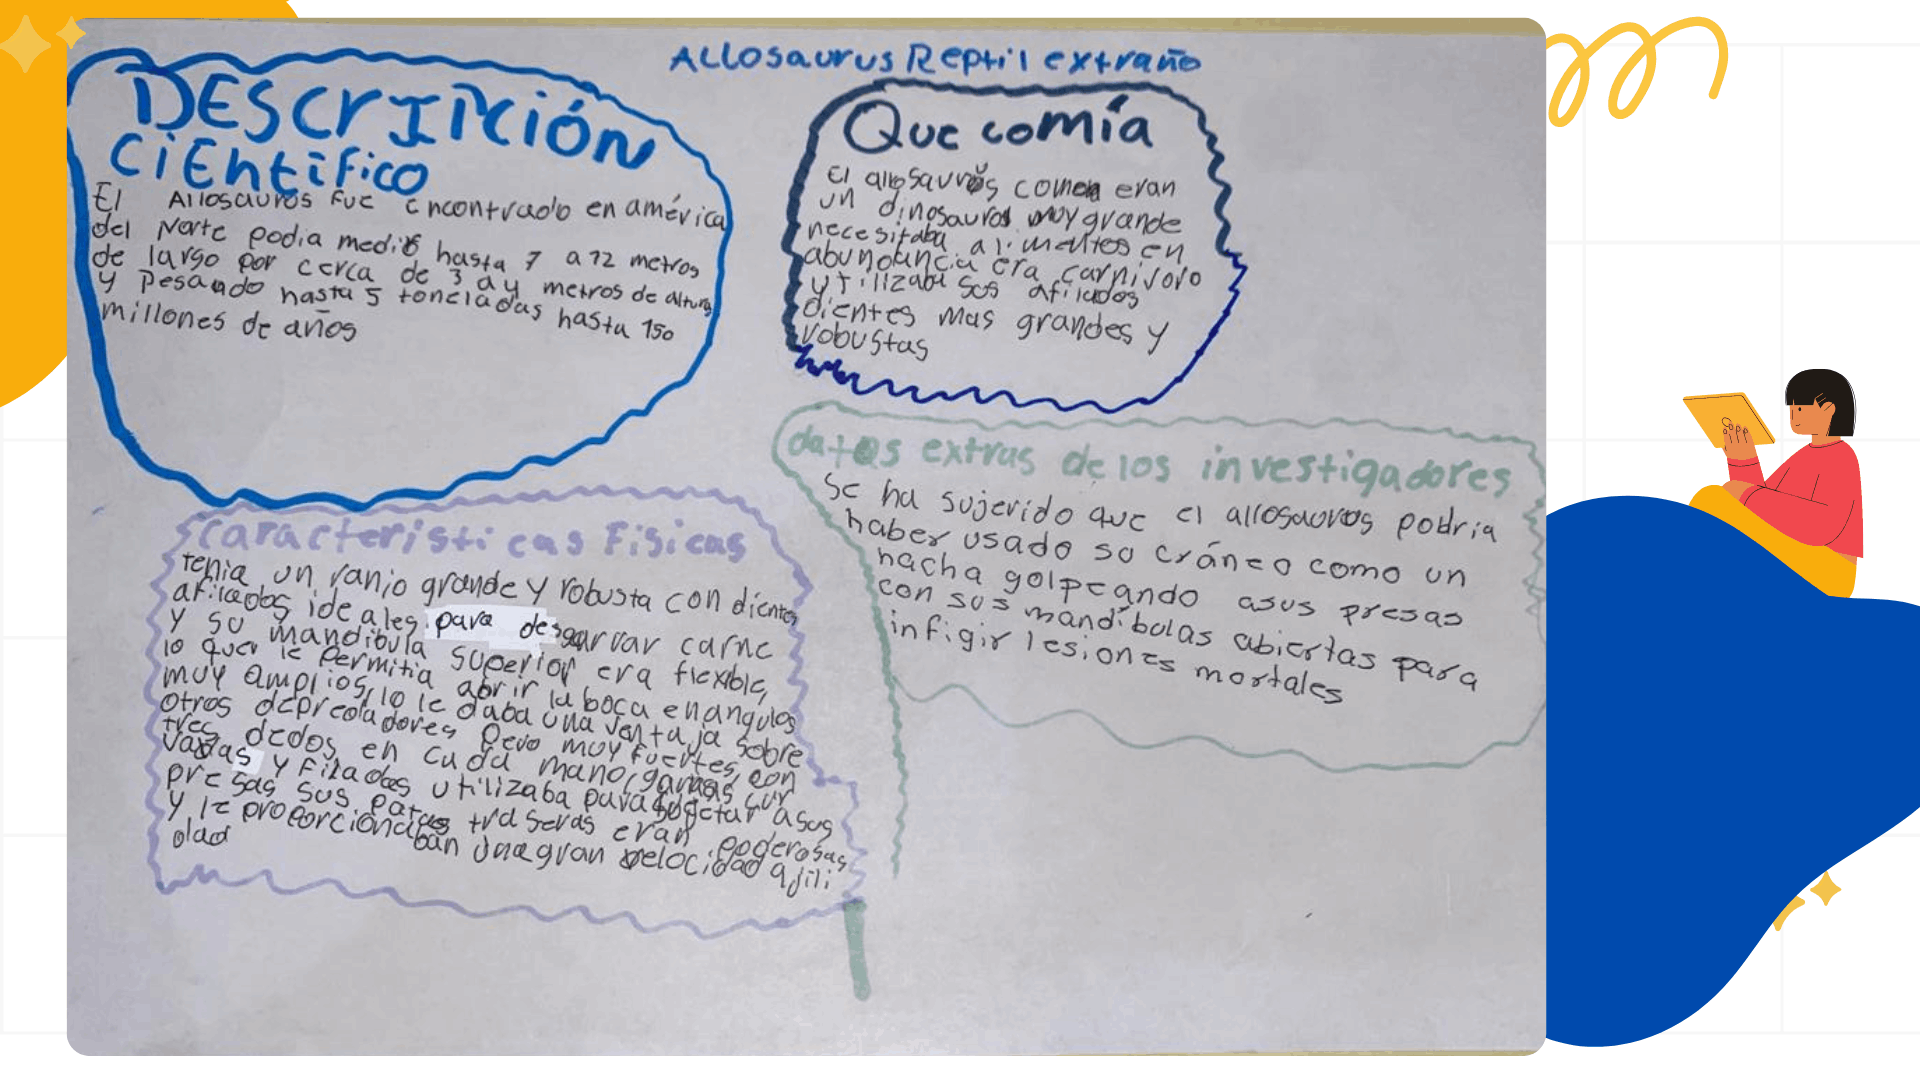 Allosaurus Reptil extraño
DEScrIPción
CiEntífico
El Allosauros fue encontrado en américa
del Norte podia medir hasta 7 a 12 metros
de largo por cerca de 3 a 4 metros de altura
y Pesando hasta 5 toneladas hasta 150
millones de años
Que comía
El allosauros comen eran
un dinosauros muy grande
necesitaba alimentos en
abundancia era carnivoro
utilizaba sus afilados
dientes mas grandes y
robustas
datos extras de los investigadores
Se ha sujerido que el allosauros podria
haber usado su cráneo como un
hacha golpeando asus presas
con sus mandíbulas abiertas para
infigir lesiones mortales
caracteristicas Fisicas
tenia un grande y robusta con dientes
afilados ideales para desgarrar carne
y su mandibula superior era flexible,
lo quer le permitia abrir la boca enangulos
muy amplios, lo le daba una ventaja sobre
otros depredadores pero muy fuertes, con
tres dedos en cada mano, garras
y Filados utilizaba para asus
presas sus patas traseras eran poderosas
y le proporcionaban una gran velocidad ajili
dad